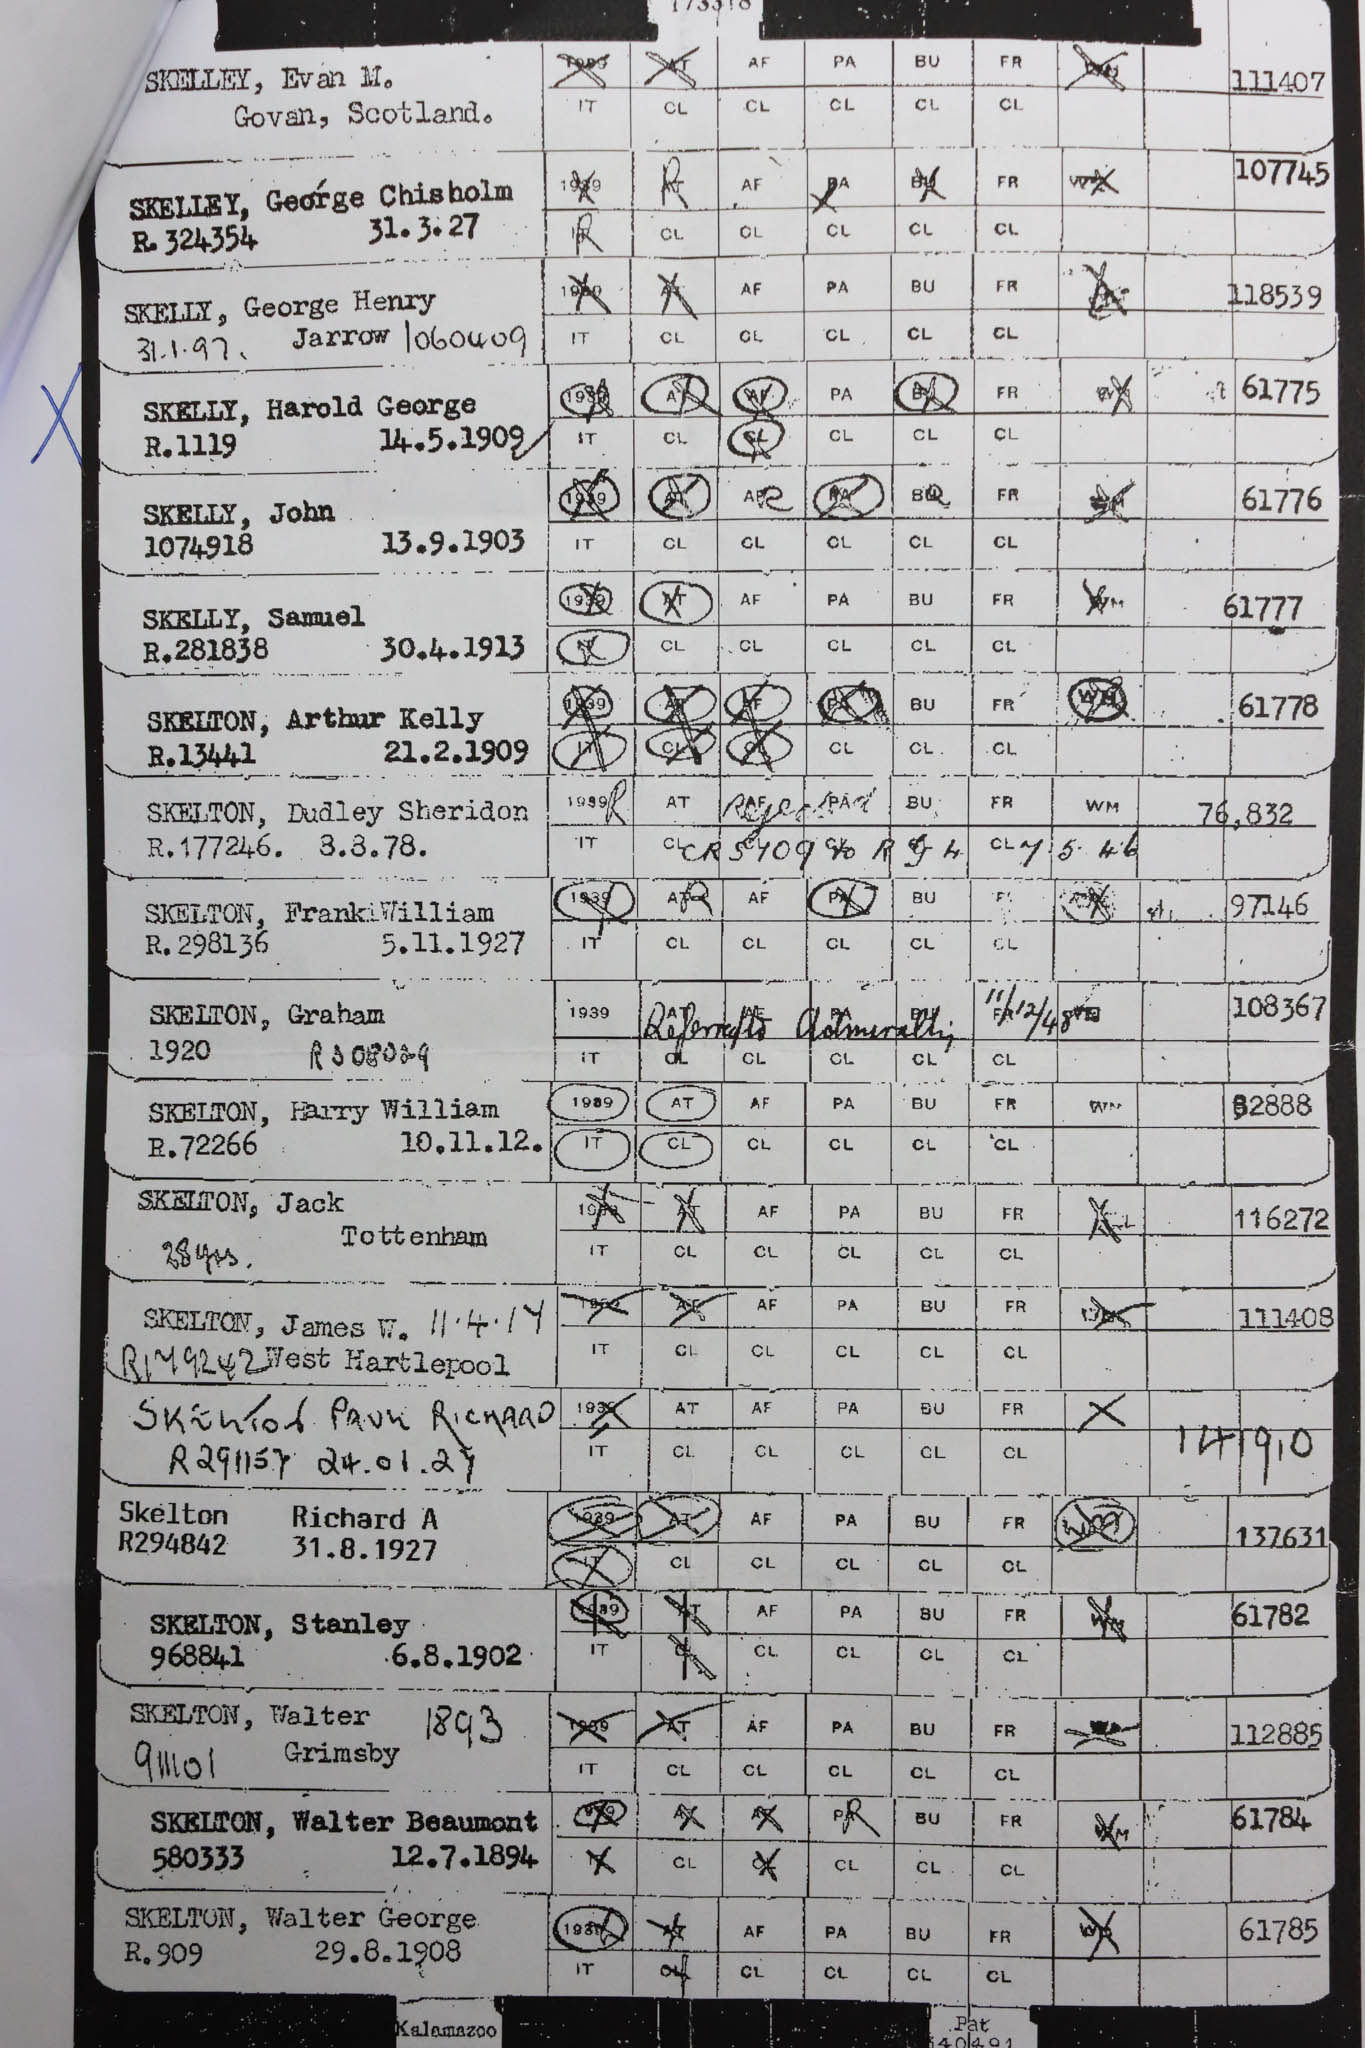 173318
SKELLEY, Evan M. 1939 AT AF PA BU FR WM 111407
Govan, Scotland. IT CL CL CL CL CL
SKELLEY, George Chisholm 1939 AT R AF PA BU FR 107745
R.324354 31.3.27 IT R CL CL CL CL CL
SKELLY, George Henry 1939 AT AF PA BU FR 118539
31.1.97. Jarrow 1060409 IT CL CL CL CL CL
X
SKELLY, Harold George 1939 AT AF PA BU FR WM 61775
R.1119 14.5.1909 IT CL CL CL CL CL
SKELLY, John 1939 AT AF R PA BU R FR WM 61776
1074918 13.9.1903 IT CL CL CL CL CL
SKELLY, Samuel 1939 AT AF PA BU FR WM 61777
R.281838 30.4.1913 IT CL CL CL CL CL
SKELTON, Arthur Kelly 1939 AT AF PA BU FR WM 61778
R.13441 21.2.1909 IT CL CL CL CL CL
SKELTON, Dudley Sheridon 1939 R AT AF PA BU FR WM 76,832
Rejected
R.177246. 3.3.78. IT CL CL CL CL CL
7 5 46
SKELTON, Frank William 1939 AT R AF PA BU 97146
R.298136 5.11.1927 IT CL CL CL CL CL
SKELTON, Graham 1939 AT AF PA BU FR 108367
Referred to Admiralty 11/12/48
1920 R308039 IT CL CL CL CL CL
SKELTON, Harry William 1939 AT AF PA BU FR WM 82888
R.72266 10.11.12. IT CL CL CL CL CL
SKELTON, Jack 1939 AT AF PA BU FR 116272
Tottenham
28 yrs. IT CL CL CL CL CL
SKELTON, James W. 11.4.17 1939 AT AF PA BU FR 111408
R179242 West Hartlepool IT CL CL CL CL CL
SKELTON PAUL RICHARD 1939 AT AF PA BU FR X 141910
R291157 24.01.27 IT CL CL CL CL CL
Skelton Richard A 1939 AT AF PA BU FR WM 137631
R294842 31.8.1927 IT CL CL CL CL CL
SKELTON, Stanley 1939 AT AF PA BU FR WM 61782
968841 6.8.1902 IT CL CL CL CL CL
SKELTON, Walter 1893 1939 AT AF PA BU FR 112885
911101 Grimsby IT CL CL CL CL CL
SKELTON, Walter Beaumont 1939 AT AF PA R BU FR WM 61784
580333 12.7.1894 IT CL CL CL CL CL
SKELTON, Walter George 1939 AT AF PA BU FR WM 61785
R.909 29.8.1908 IT CL CL CL CL CL
Kalamazoo Pat